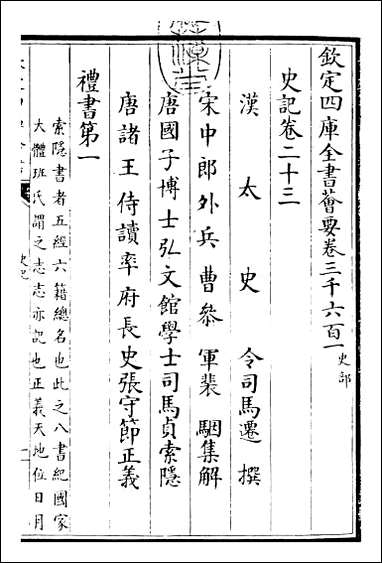 欽定四庫全書薈要卷三千六百一 史部
史記卷二十三
漢太史令司馬遷撰
宋中郎外兵曹叅軍裴駰集解
唐國子博士弘文館學士司馬貞索隱
唐諸王侍讀率府長史張守節正義
禮書第一
索隱書者五經六籍總名也此之八書紀國家
大體班氏謂之志志亦記也正義天地位日月
史記